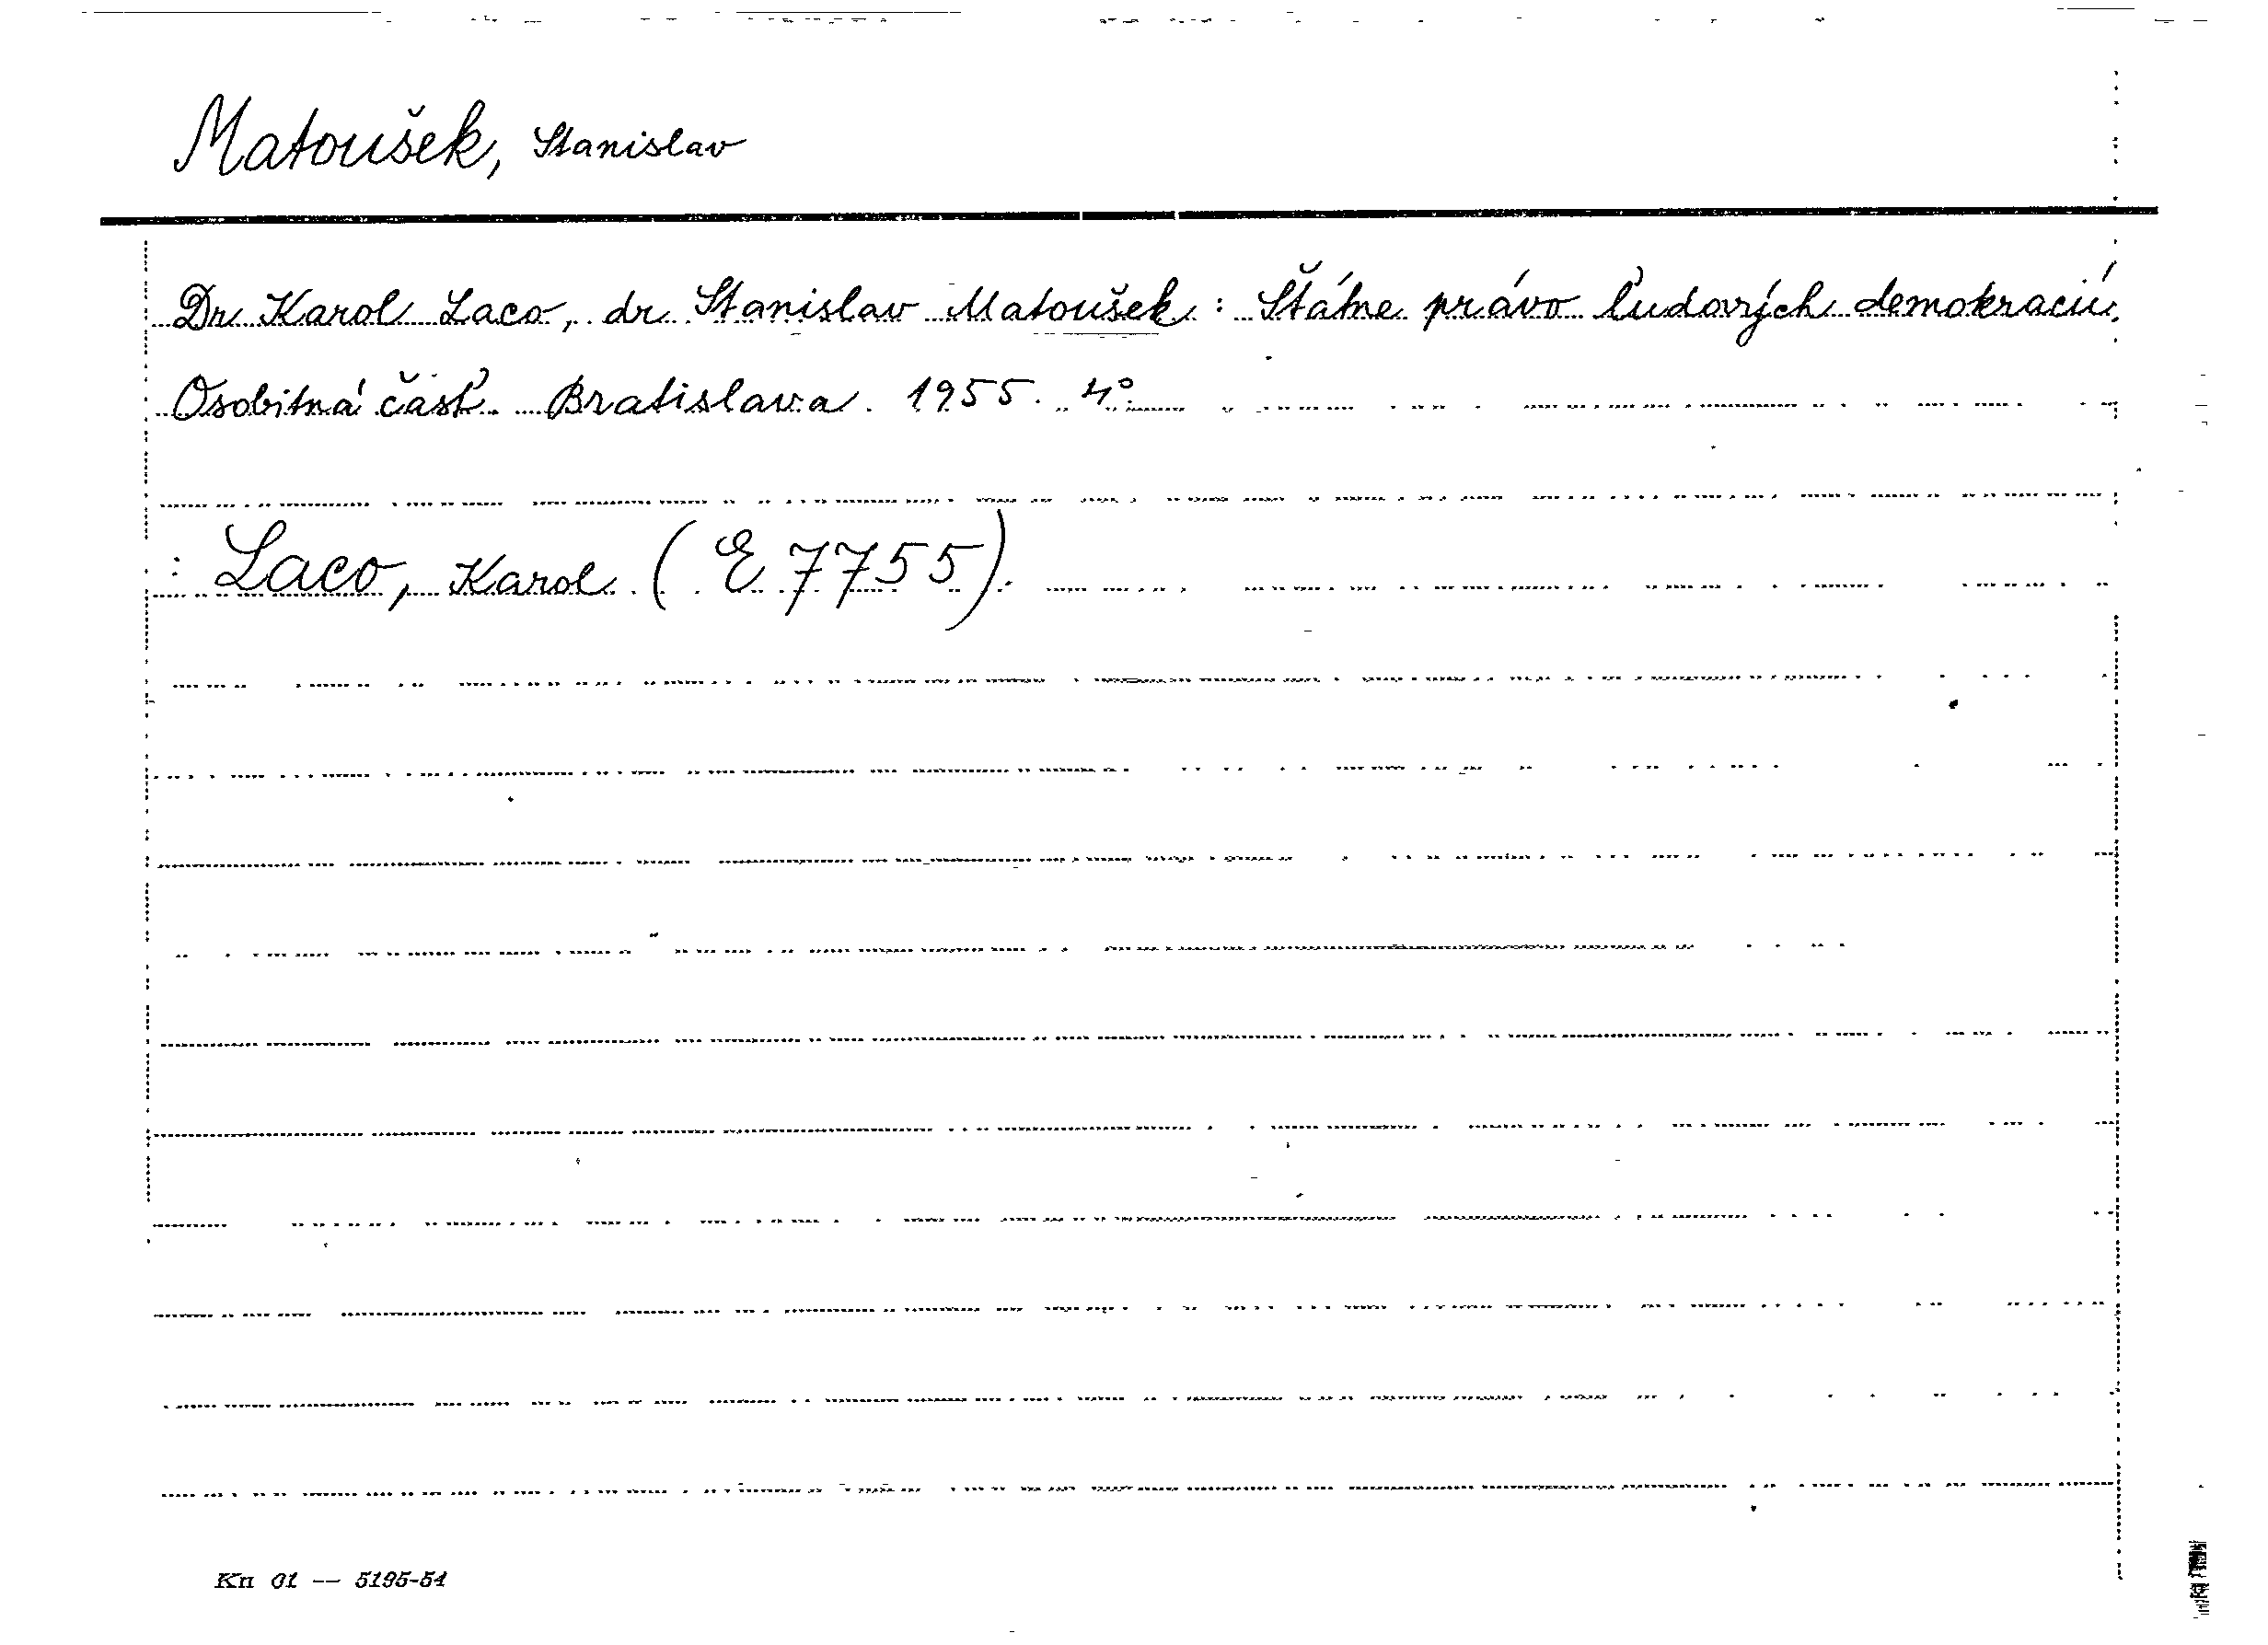 Matoušek, Stanislav
Dr Karol Laco, dr. Stanislav Matoušek: Štátne právo ľudových demokracií.
Osobitná časť. Bratislava. 1955. 4°.
: Laco, Karol (E 7755).
Kn 01 — 5195-54